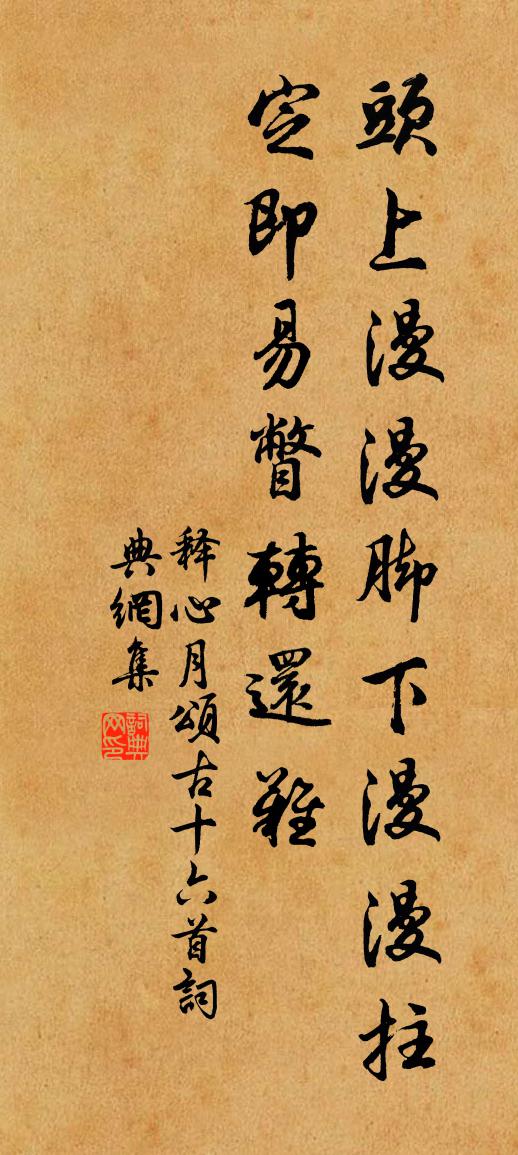 頭上漫漫脚下漫漫拄
定即易瞥轉還難
释心月頌古十六首詞
典網集
詞典
网印